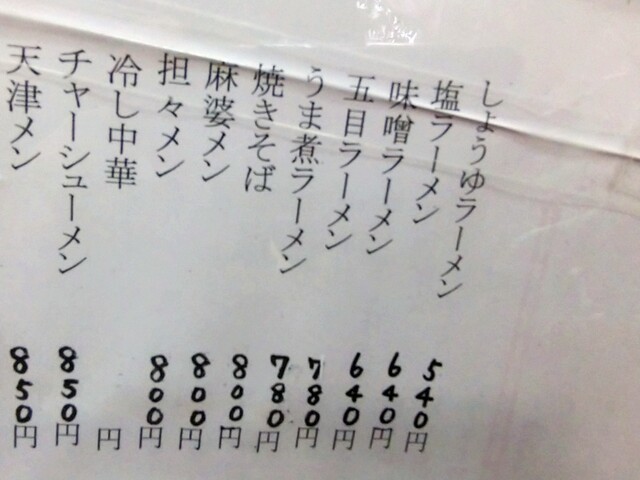 しょうゆラーメン 540円
塩ラーメン 640円
味噌ラーメン 640円
五目ラーメン 780円
うま煮ラーメン 780円
焼きそば 800円
麻婆メン 800円
担々メン 800円
冷し中華 円
チャーシューメン 850円
天津メン 850円